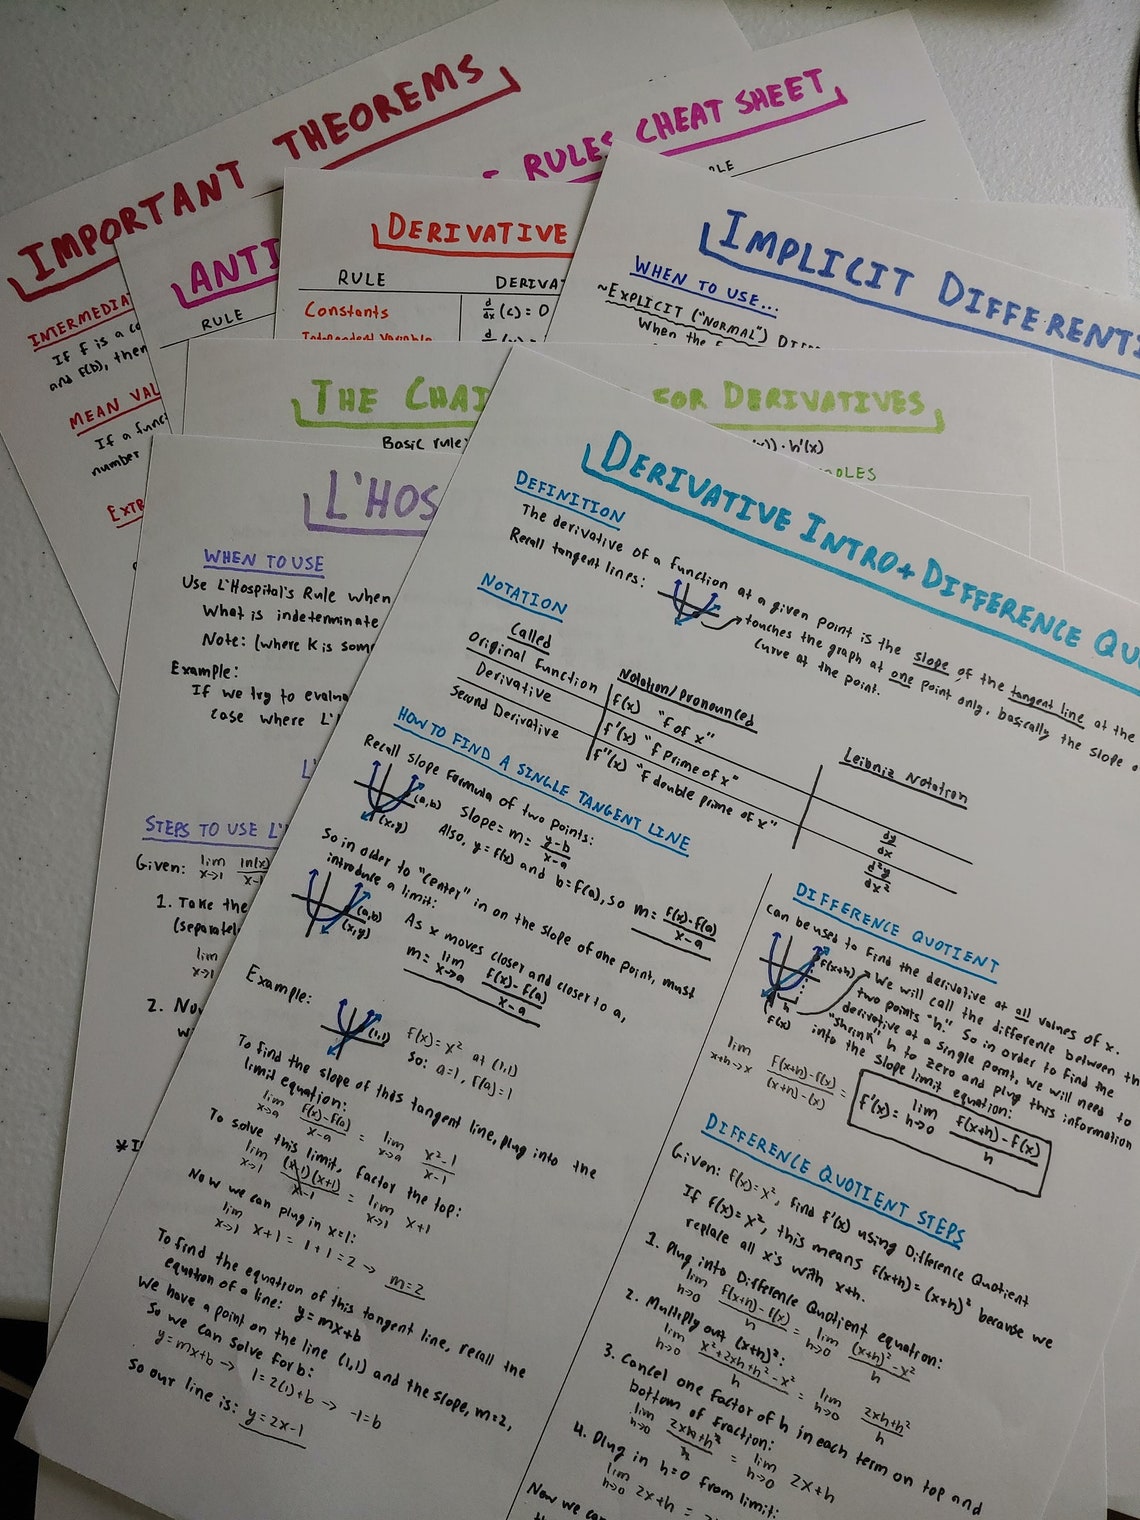 IMPORTANT THEOREMS
INTERMEDIA
If f is a co
and f(b), then
MEAN VAL
If a func
number
EXTR
RULES CHEAT SHEET
ANTI
RULE
DERIVATIVE
RULE DERIVA
Constants d/dx (c) = 0
Independent Variable d/dx
IMPLICIT DIFFERENTI
WHEN TO USE...
~EXPLICIT ("NORMAL") DIFF
When the f
THE CHAI
FOR DERIVATIVES
Basic rule:
(x)) · h'(x)
L'HOS
WHEN TO USE
Use L'Hospital's Rule when
What is indeterminate
Note: (where K is som
Example:
If we try to evalua
case where L'
STEPS TO USE L'
Given: lim x→1 ln(x)/x-1
1. Take the
(separatel
lim x→1
2. Now
DERIVATIVE INTRO + DIFFERENCE QU
DEFINITION
The derivative of a function at a given point is the slope of the tangent line at the
Recall tangent lines:
touches the graph at one point only. basically the slope o
curve at the point.
NOTATION
Called Notation/Pronounced Leibniz Notation
Original Function f(x) "f of x"
Derivative f'(x) "f prime of x" dy/dx
Second Derivative f''(x) "f double prime of x" d²y/dx²
HOW TO FIND A SINGLE TANGENT LINE
Recall slope formula of two points:
(a,b)
(x,y)
Slope = m = y-b/x-a
Also, y = f(x) and b = f(a), so m = f(x)-f(a)/x-a
So in order to "center" in on the slope of one point, must
introduce a limit:
(a,b)
(x,y)
As x moves closer and closer to a,
m = lim x→a f(x)-f(a)/x-a
Example:
(1,1)
f(x) = x² at (1,1)
So: a=1, f(a)=1
To find the slope of this tangent line, plug into the
limit equation:
lim x→a f(x)-f(a)/x-a = lim x→a x²-1/x-1
To solve this limit, factor the top:
lim x→1 (x-1)(x+1)/x-1 = lim x→1 x+1
Now we can plug in x=1:
lim x→1 x+1 = 1+1 = 2 → m=2
To find the equation of this tangent line, recall the
equation of a line: y=mx+b
We have a point on the line (1,1) and the slope, m=2,
So we can solve for b:
y=mx+b → 1=2(1)+b → -1=b
So our line is: y=2x-1
DIFFERENCE QUOTIENT
Can be used to find the derivative at all values of x.
f(x+h)
h
f(x)
We will call the difference between th
two points "h." So in order to find the
derivative at a single point, we will need to
"shrink" h to zero and plug this information
into the slope limit equation:
lim x+h→x f(x+h)-f(x)/(x+h)-(x) = f'(x) = lim h→0 f(x+h)-f(x)/h
DIFFERENCE QUOTIENT STEPS
Given: f(x)=x², find f'(x) using Difference Quotient
If f(x)=x², this means f(x+h)=(x+h)² because we
replace all x's with x+h.
1. Plug into Difference Quotient equation:
lim h→0 f(x+h)-f(x)/h = lim h→0 (x+h)²-x²/h
2. Multiply out (x+h)²:
lim h→0 x²+2xh+h²-x²/h = lim h→0 2xh+h²/h
3. Cancel one factor of h in each term on top and
bottom of fraction:
lim h→0 2xh+h²/h = lim h→0 2x+h
4. Plug in h=0 from limit:
lim h→0 2x+h =
Now we can